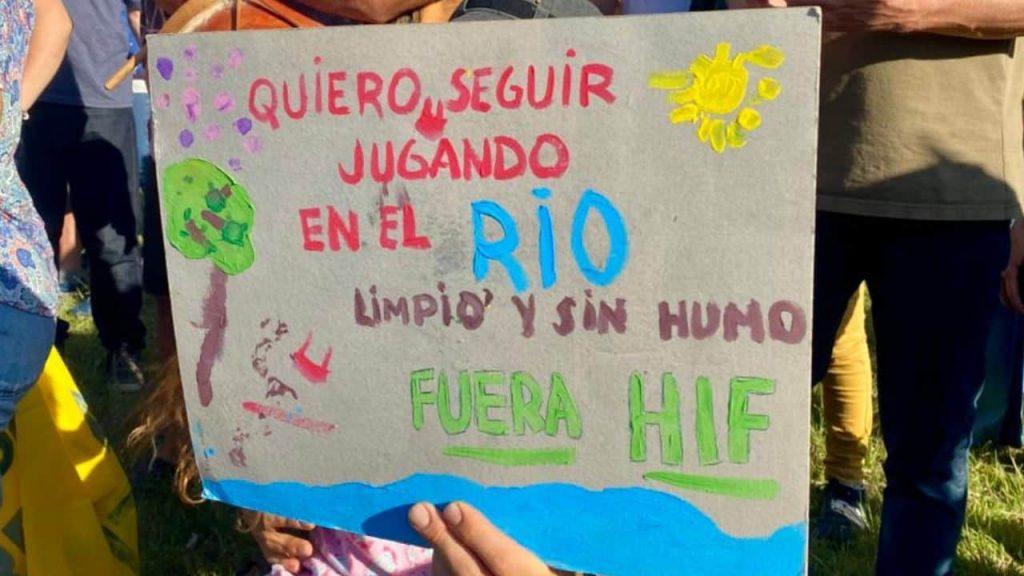 QUiERO SEGUIR
JUGANDO
EN EL RiO
LiMPiO' Y SiN HUMO
FUERA HIF